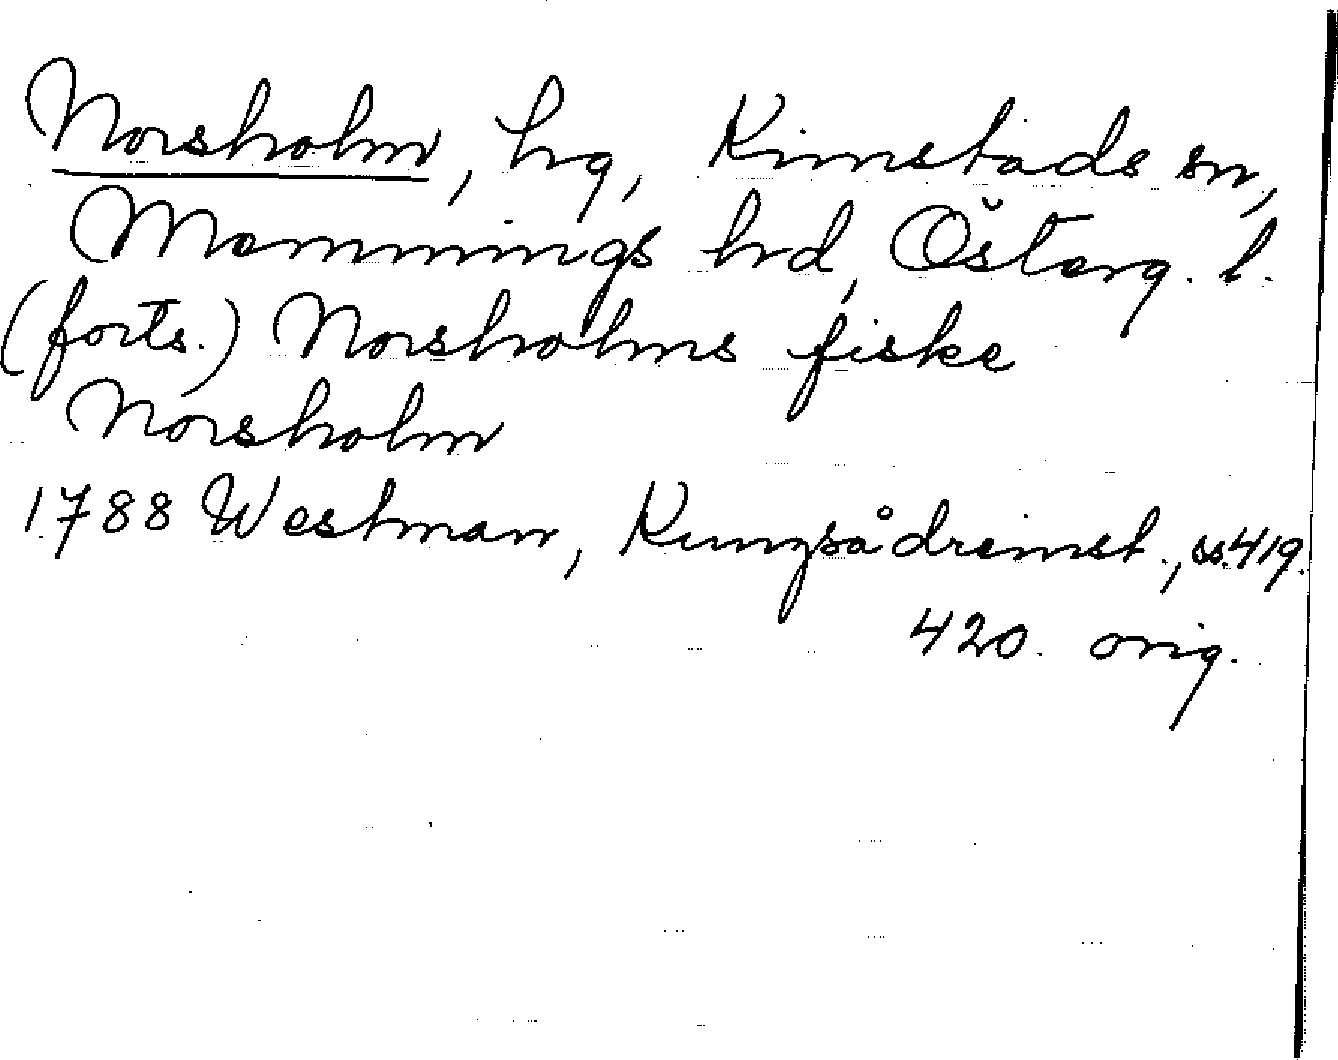 Norsholm, hg, Kimstads sn,
Memmings hrd, Österg. l.
(forts.) Norsholms fiske
Norsholm
1788 Westman, Kungsådreinst., ss. 419.
420. orig.